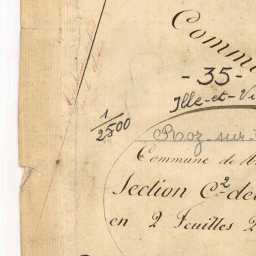 Commu
- 35 -
Ille-et-Vi
1/2500
Roz-sur-
Commune de
Section C2 de
en 2 Feuilles 2